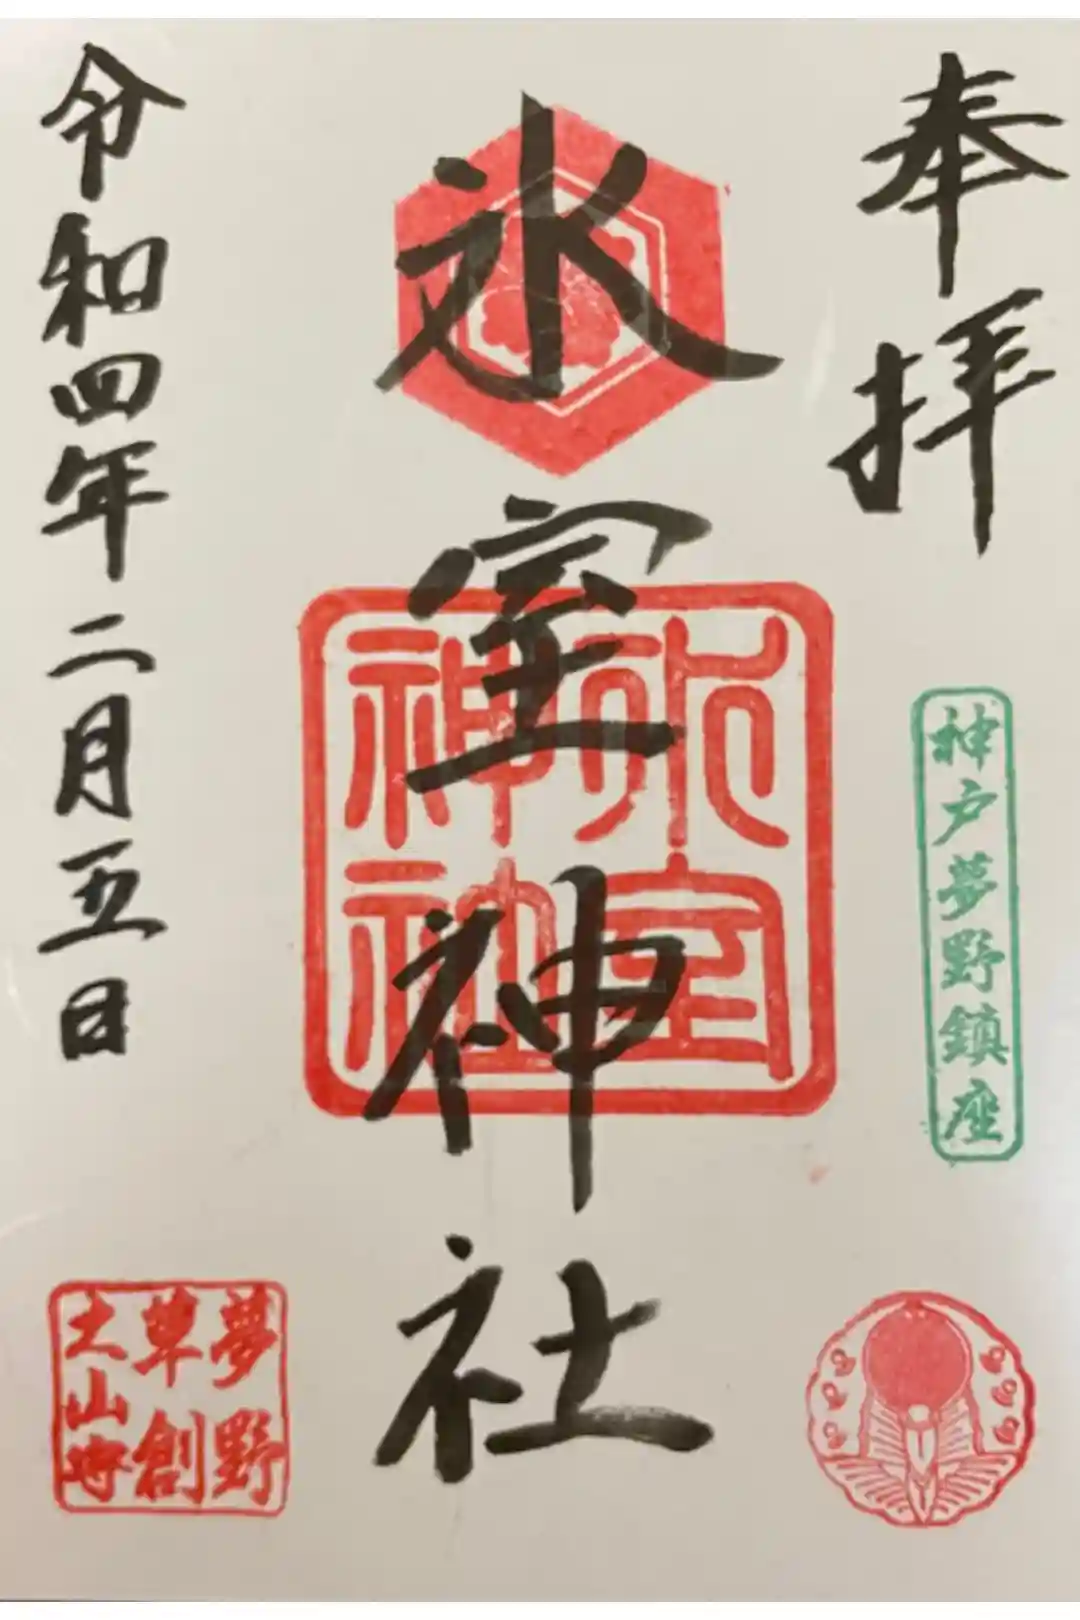 奉拝
神戸夢野鎮座
氷室神社
氷室
神社
令和四年二月五日
夢野
草創
土山時